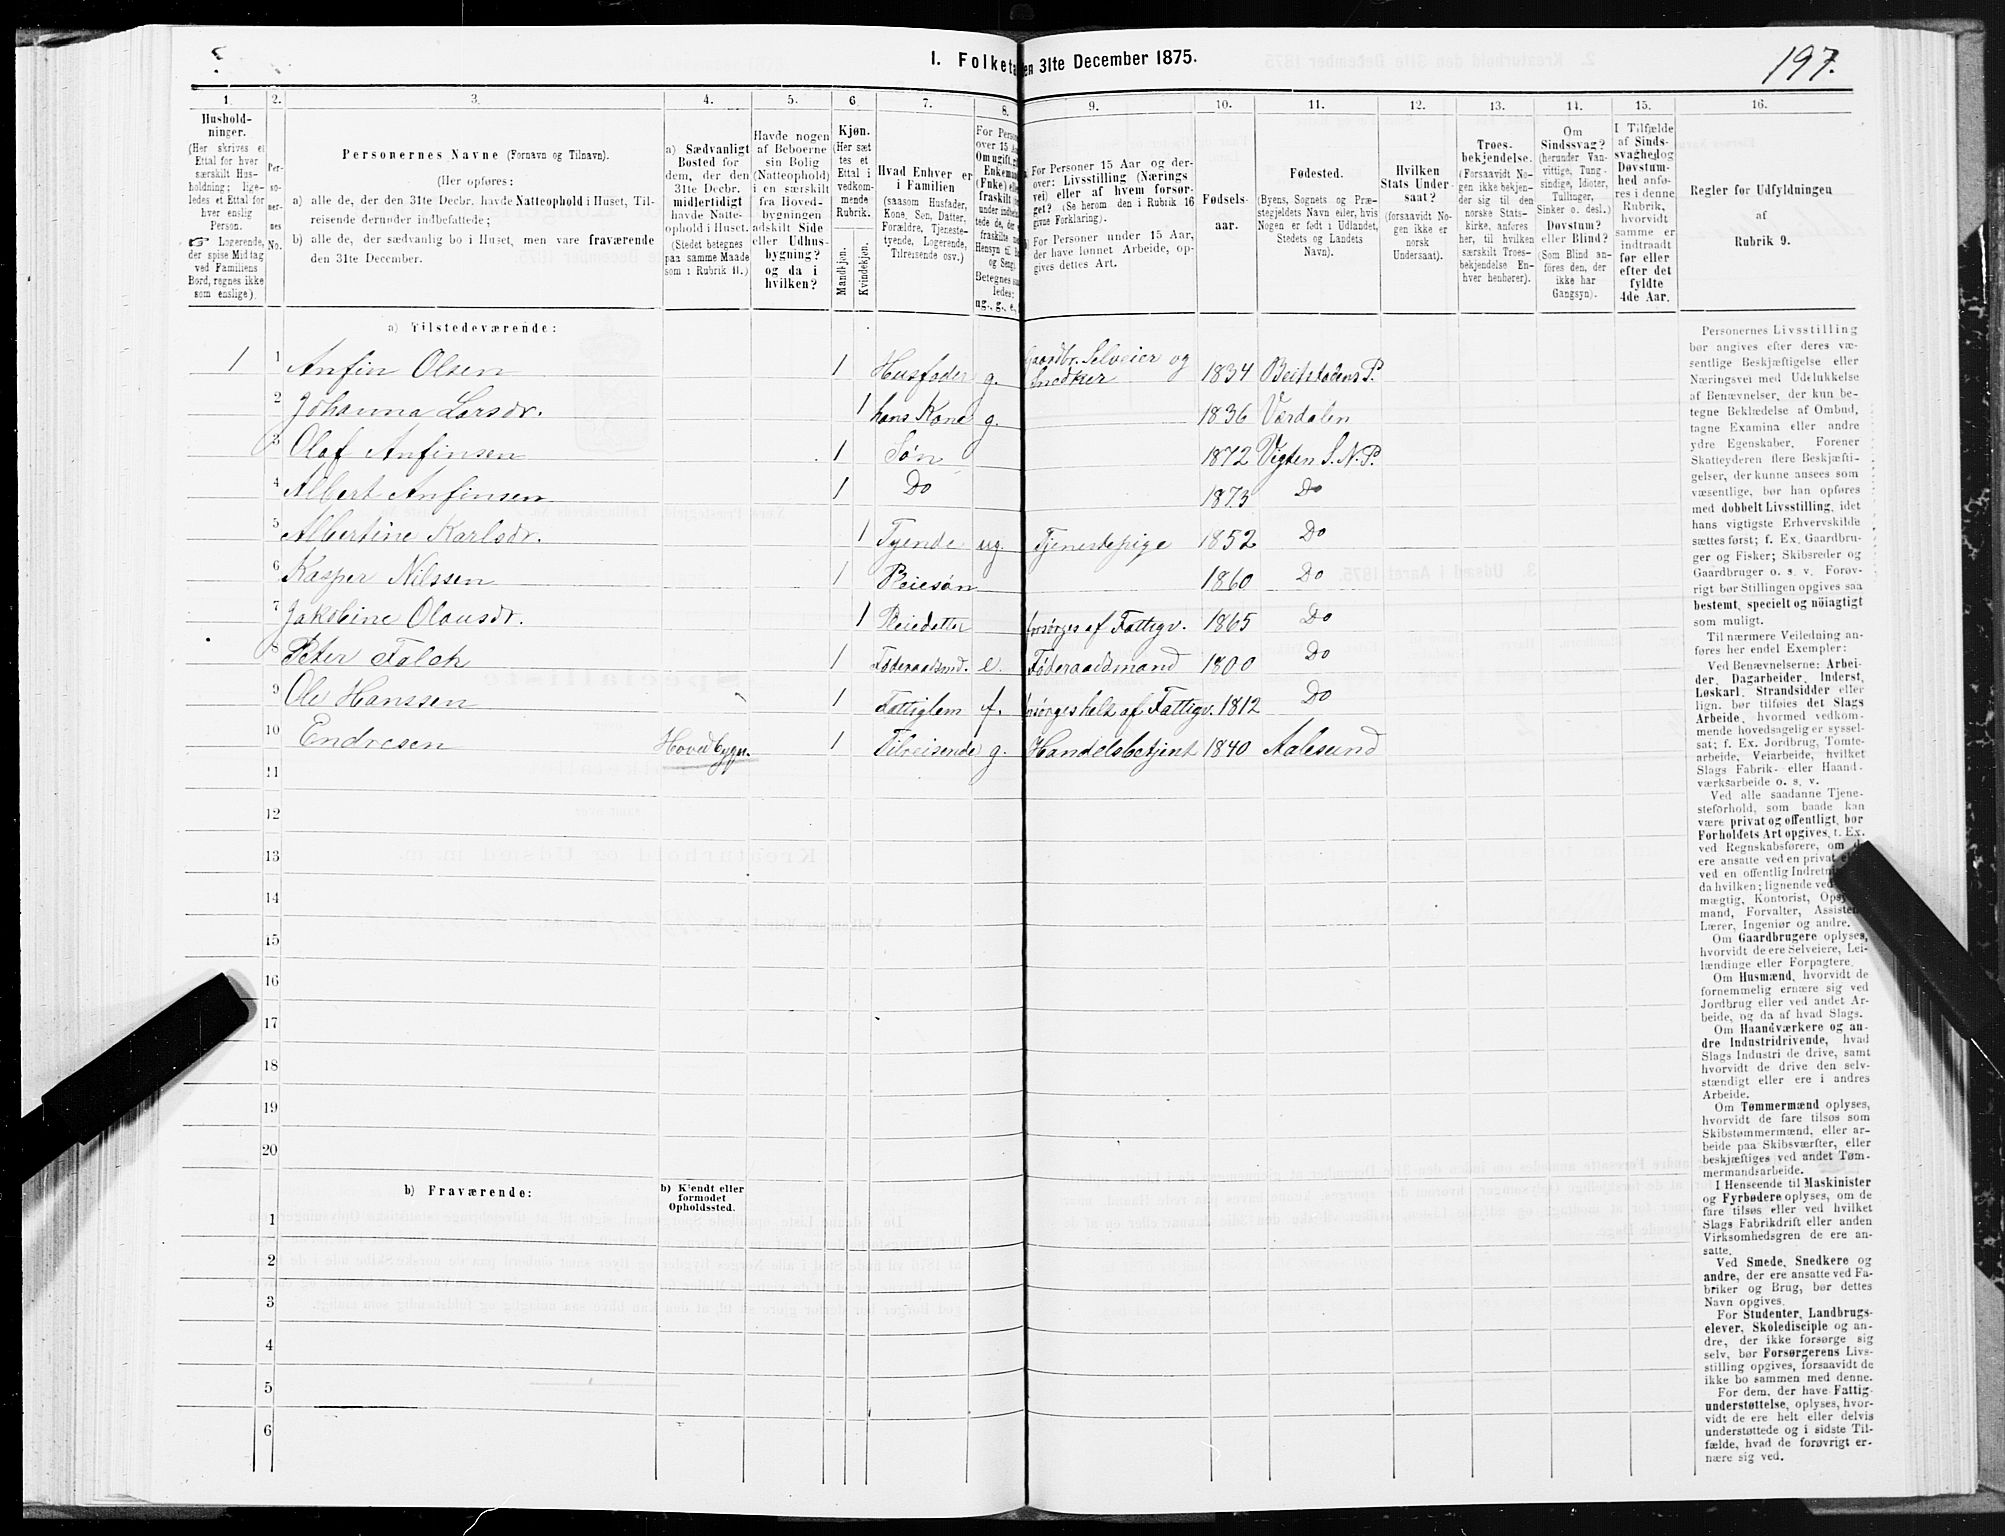 197.
1. Folketa en 31te December 1875.
1. 2. 3. 4. 5. 6. 7. 8. 9. 10. 11. 12. 13. 14. 15. 16.
Husholdninger.
(Her skrives et
Ettal for hver
særskilt Husholdning;
ligeledes et Ettal for
hver enslig
Person.
☞ Logerende,
der spise Middag
ved Familiens
Bord, regnes ikke
som enslige).
Personernes No.
Personernes Navne (Fornavn og Tilnavn).
(Her opføres:
a) alle de, der den 31te Decbr. havde Natteophold i Huset, Tilreisende dernøder indbefattede;
b) alle de, der sædvanlig bo i Huset, men vare fraværende
den 31te December.
a) Sædvanligt
Bosted for
dem, der den
31te Decbr.
midlertidigt
havde Natteophold i Huset.
(Stedet betegnes
paa samme Maade
som i Rubrik 11.)
Havde nogen
af Beboerne
sin Bolig
(Natteophold)
i en særskilt
fra Hovedbygningen
adskilt Side
eller Udhusbygning?
og da i
hvilken?
Kjøn.
(Her sættes et
Ettal i
vedkommende
Rubrik.
Mandkjøn.
Kvindekjøn.
Hvad Enhver er
i Familien
(saasom Husfader,
Kone, Søn, Datter,
Forældre, Tjenestetyende, Logerende,
Tilreisende osv.)
For Personer
over 15 Aar
Om ugift, gift
Enkemand
(Enke) eller
fraskilt
Betegnes saaledes:
ug., g., e.,
For Personer 15 Aar og derover: Livsstilling (Næringsvei) eller af hvem forsørget? (Se herom den i Rubrik 16
givne Forklaring).
For Personer under 15 Aar,
der have lønnet Arbeide, opgives dettes Art.
Fødselsaar.
Fødested.
(Byens, Sognets og Præstegjeldets Navn eller, hvis
Nogen er født i Udlandet,
Stedets og Landets
Navn).
Hvilken
Stats Undersaat?
(forsaavidt Nogen ikke er
norsk
Undersaat).
Troesbekjendelse.
(Forsaavidt Nogen ikke bekjender sig til den
norske Statskirke, anføres
her, til hvilken
særskilt Troesbekjendelse Enhver henhører).
Om
Sindssvag?
(herunder Vanvittige, Tungsindige, Idioter,
Tullinger,
Sinker o. desl.)
Døvstum?
eller Blind?
(Som Blind anføres den, der
ikke har
Gangsyn).
I Tilfælde
af Sindssvaghed og
Døvstumhed anføres i denne
Rubrik,
hvorvidt
samme er
indtraadt
før eller
efter det
fyldte
4de Aar.
Regler for Udfyldningen
af
Rubrik 9.
a) Tilstedeværende:
1 1 Anfin Olsen 1 Husfader g. Gaardbr. Selveier og Snedker 1834 Beitstadens P.
2 Johanna Larsdr. 1 hans Kone g. 1836 Værdalen
3 Olaf Anfinsen 1 Søn 1872 Vigten S. N. P.
4 Albert Anfinsen 1 Do 1873 Do
5 Albertine Karlsdr. 1 Tyende ug. Tjenestepige 1852 Do
6 Kasper Nilssen 1 Pleiesøn 1860 Do
7 Jakobine Olausdr. 1 Pleiedatter forsørges af Fattigv. 1865 Do
8 Peter Falch 1 Føderaadsmd. e. Føderaadmand 1800 Do
9 Ole Hanssen 1 Fattiglem f. forsørges helt af Fattigv. 1812 Do
10 Endresen Hovedbygn. 1 Tilreisende g. Handelsbetjent 1840 Aalesund
11
12
13
14
15
16
17
18
19
20
b) Fraværende:
b) Kjendt eller
formodet
Opholdssted.
1
2
3
4
5
6
Personernes Livsstilling
bør angives efter deres væsentlige Beskjæftigelse eller
Næringsvei med Udelukkelse
af Benævnelser, der kun betegne Beklædelse af Ombud,
tagne Examina eller andre
ydre Egenskaber. Forener
Skatteyderen flere Beskjæftigelser, der kunne ansees som
væsentlige, bør han opføres
med dobbelt Livsstilling, idet
hans vigtigste Erhvervskilde
sættes først; f. Ex. Gaardbruger og Fisker; Skibsreder og
Gaardbruger o. s. v. Forøvrigt bør Stillingen opgives saa
bestemt, specielt og nöiagtigt
som muligt.
Til nærmere Veiledning anføres her endel Exempler:
Ved Benævnelserne: Arbeider, Dagarbeider, Inderst,
Løskarl, Strandsidder eller
lign. bør tilføies det Slags
Arbeide, hvormed vedkommende hovedsagelig er sysselsat; f. Ex. Jordbrug, Tomtearbeide, Veiarbeide, hvilket
Slags Fabrik- eller Haandværksarbeide o. s. v.
Ved alle saadanne Tjenesteforhold, som baade kan
være privat og offentligt, bør
Forholdets Art opgives, f. Ex.
ved Regnskabsførere, om
ere ansatte ved en privat
ved en offentlig Indretn
da hvilken; lignende ved
mægtig, Kontorist, Ops
mand, Forvalter, Assisten
Lærer, Ingeniør og andre.
Om Gaardbrugere oplyses,
hvorvidt de ere Selveiere, Leilændinge eller Forpagtere.
Om Husmænd, hvorvidt de
fornemmelig ernære sig ved
Jordbrug eller ved andet Arbeide, og da af hvad Slags.
Om Haandværkere og andre Industridrivende, hvad
Slags Industri de drive, samt
hvorvidt de drive den selvstændigt eller ere i andres
Arbeide.
Om Tømmermænd oplyses,
hvorvidt de fare tilsøs som
Skibstømmermænd, eller arbeide paa Skibsværfter, eller
beskjæftiges ved andet Tømmermandsarbeide.
I Henseende til Maskinister
og Fyrbødere oplyses, om de
fare tilsøs eller ved hvilket
Slags Fabrikdrift eller anden
Virksomhedsgren de ere ansatte.
Ved Smede, Snedkere og
andre, der ere ansatte ved Fabriker og Brug, bør dettes
Navn opgives.
For Studenter, Landbrugselever, Skoledisciple og andre, der ikke forsørge sig
selv, bør Forsørgerens Livsstilling opgives, forsaavidt de
ikke bo sammen med denne.
For dem, der have Fattigunderstøttelse, oplyses, hvorvidt de ere helt eller delvis
understøttede og i sidste Tilfælde, hvad de forøvrigt ernære sig ved.